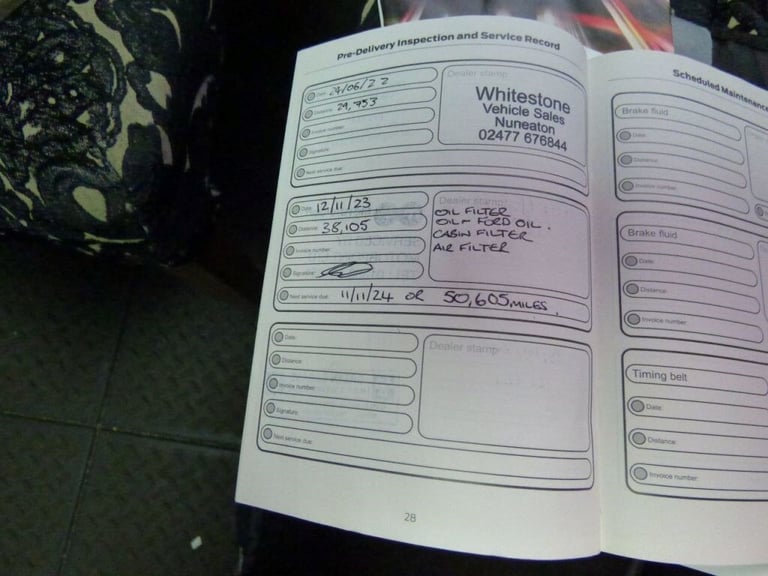 Pre-Delivery Inspection and Service Record
Date: 24/06/22
Distance: 29,753
Invoice number:
Signature:
Next service due:
Dealer stamp
Whitestone
Vehicle Sales
Nuneaton
02477 676844
Date: 12/11/23
Distance: 38,105
Invoice number:
Signature:
Next service due: 11/11/24 OR 50,605 MILES.
Dealer stamp
OIL FILTER
OIL - FORD OIL.
CABIN FILTER
AIR FILTER
Date:
Distance:
Invoice number:
Signature:
Next service due:
Dealer stamp
28
Scheduled Maintenance
Brake fluid
Date:
Distance:
Invoice number:
Brake fluid
Date:
Distance:
Invoice number:
Timing belt
Date:
Distance:
Invoice number: